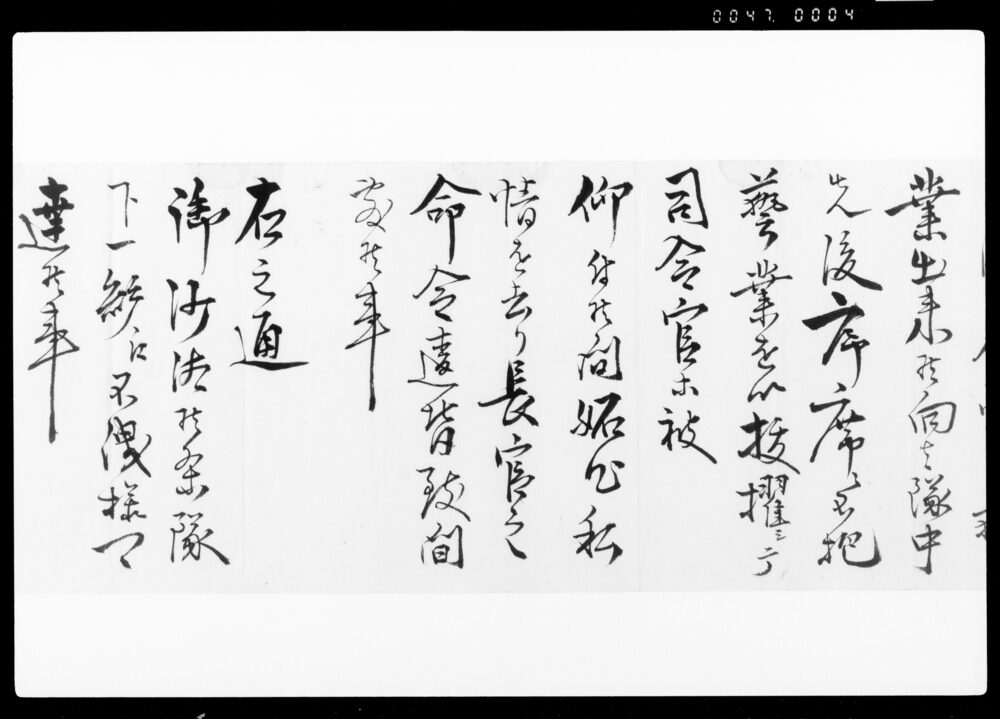 0047. 0004
業出来候向も隊中
先後序席ニ不抱
藝業を以抜擢ニ而
司令官ホ被
仰付候間妬忌私
情を去り長官之
命令遵奉致間
敷候事
右之通
御沙汰候条隊
下一統江不洩様可
達候事